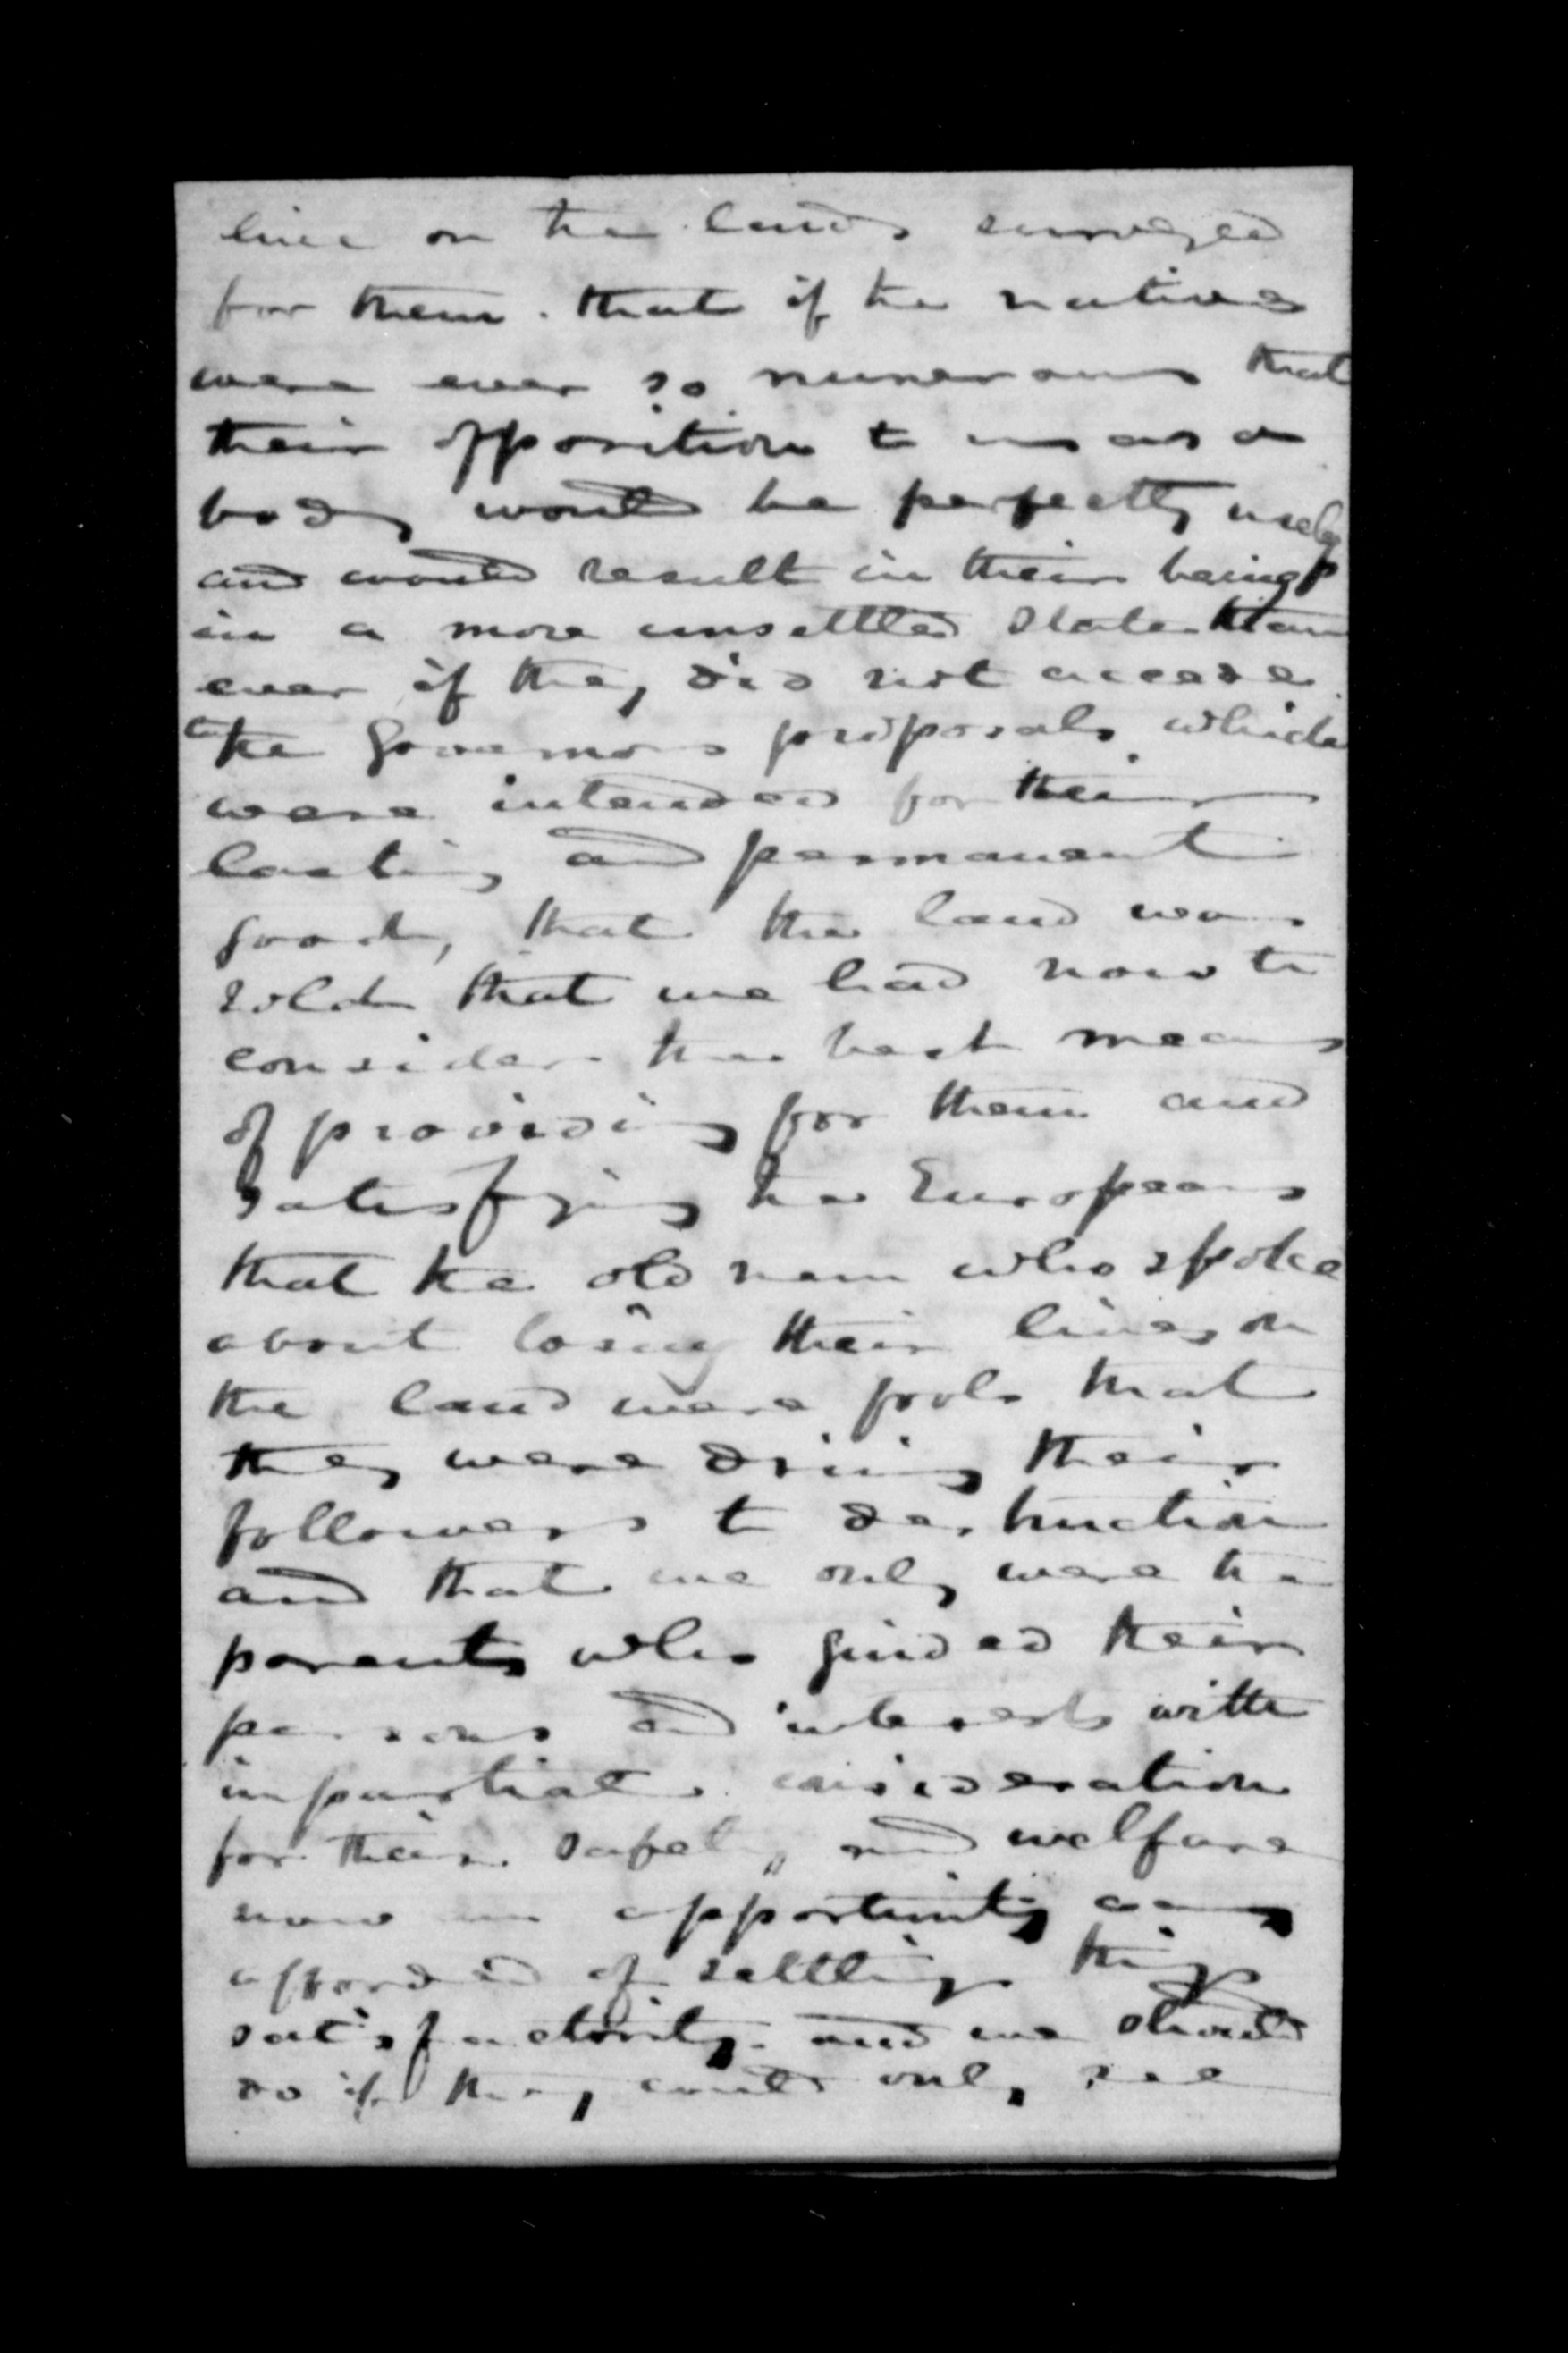 live on the lands surveyed
for them. that if the natives
were ever so numerous that
their opposition to us as a
body would be perfectly useless
and would result in their being
in a more unsettled state than
ever if they did not accede
to the Governors proposals which
were intended for their
lasting and permanent
good, that the land was
sold that we had now to
consider the best means
of providing for them and
satisfying the Europeans
that the old men who spoke
about losing their lives on
the land were fools that
they were driving their
followers to destruction
and that we only were the
parents who guided their
persons and interests with
impartial consideration
for their safety and welfare
now an opportunity was
afforded of settling things
satisfactorily. and we should
do if they could only see